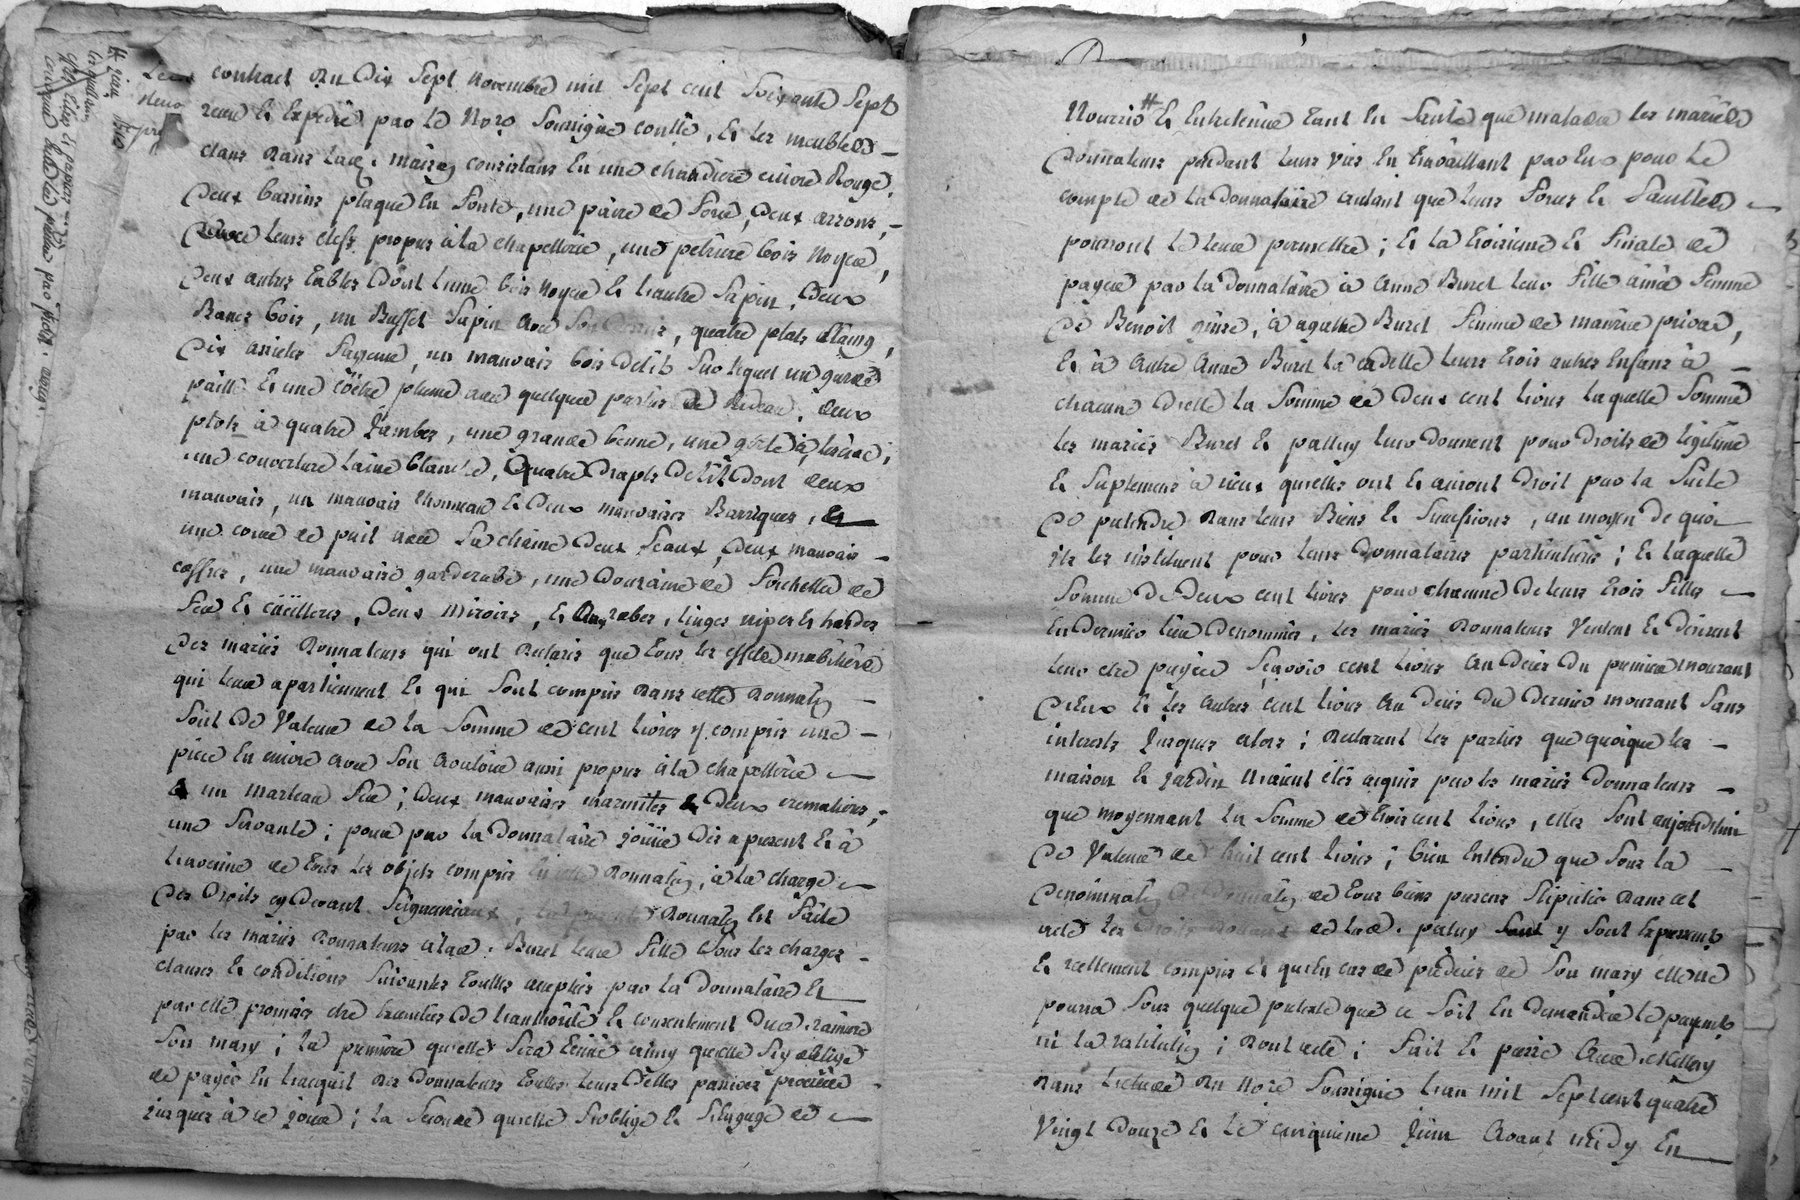 contract du Dix Sept Novembre mil Sept cent Soixante Sept
receu & Expedié par le Nore Soussigné controllé, & les meubles
dans laditte maison consistans En une chaudiere cuivre Rouge,
Deux bassins plaque En fonte, une paire de force, Deux arçons,
avec leurs clefs propres à la chapellerie, une petriere bois Noyer,
Deux autres tables dont l'une bois Noyer & l'autre Sapin, Deux
Bancs bois, un Buffet Sapin avec Son, quatre plats Etaing,
Dix assietes fayence, un mauvais bois de lit Sur lequel un garde
paille & une Coëtre plume avec quelques parties de Rideau, deux
plots à quatre Jambes, une grande benne, une à lessive,
une couverture laine blanche, Quatre Draps de lit dont deux
mauvais, un mauvais thonneau & Deux mauvaises Barriques, &
une corde de puit avec Sa chaine Deux Seaux, Deux mauvais
coffres, une mauvaise garderobe, une Douzaine de fourchettes de
fer & cuëilleres, Deux Miroirs, & robes, linges nipes & hardes
Des mariés Donnateurs qui ont Declarés que tous les effets mobiliers
qui leur apartiennent & qui Sont compris dans cette Donnation
Sont de Valeur de la Somme de cent livres y compris une
piece En cuivre avec Son Rouloir aussi propres à la chapellerie
& un marteau fer; Deux mauvaises marmites & Deux cremalieres,
une Servante; pour par la Donnataire Jouïr Dès apresent & à
l'avenir de tous les objets compris En cette Donnation, à la charge
Des Droits cy devant Seigneuriaux, la presente Donnation Est faite
par les mariés Donnateurs à laditte Buret leur fille Sous les charges
clauses & conditions Suivantes toutes acceptées par la Donnataire &
par elle promises être Executées De l'authorité & consentement dudit
Son mary; la premiere qu'elle Sera tenüe ainsy qu'elle S'y oblige
de payer En l'acquit des Donnateurs toutes leurs Dettes passives
jusques à ce jour; la Seconde qu'elle S'oblige & S'engage de
Nourrir # & Entretenir tant En Santé que maladie les mariés
Donnateurs pendant leurs vies En travaillant par Eux pour le
compte de la Donnataire autant que leurs forces & facultés
pourront le leur permettre; & la troisieme & finale de
payer par la Donnataire à Anne Buret leur fille ainée femme
de Benoit, à agathe Buret femme de maurice privas,
& à autre Anne Buret la cadette leurs trois autres Enfans à
chacune D'elle la Somme de Deux cent livres laquelle Somme
les mariés Buret & palluy leur donnent pour droits de légitime
& Suplement à ceux qu'elles ont & auront Droit par la Suite
de pretendre dans leurs Biens & Successions, au moyen de quoi
ils les instituent pour leurs Donnataires particulieres; & laquelle
Somme De Deux cent livres pour chacune de leurs trois filles
En Dernier lieu Denommées, les mariés Donnateurs Veulent & desirent
leur etre payée Sçavoir cent livres au Decès du premier mourant
D'eux & les autres cent livres au Decès du Dernier mourant Sans
interests Jusques alors; Declarent les parties que quoique les
maison & jardin n'aient étés acquis par les mariés Donnateurs
que moyennant la Somme de trois cent livres, elles Sont aujourd'hui
de Valeur de huit cent livres; bien Entendu que Sous la
Denomination de Donnation de tous biens presens Stipulée dans cet
acte les Droits de laditte paluy y Sont Expressement
& reellement compris & qu'En cas de predecès de Son mary elle ne
pourra Sous quelque pretexte que ce Soit En demander le payement
ni la restitution; Dont acte; fait & passé
Dans l'etude du Nore Soussigné l'an mil Sept cent quatre
Vingt Douze & le cinquieme Juin Avant midy En